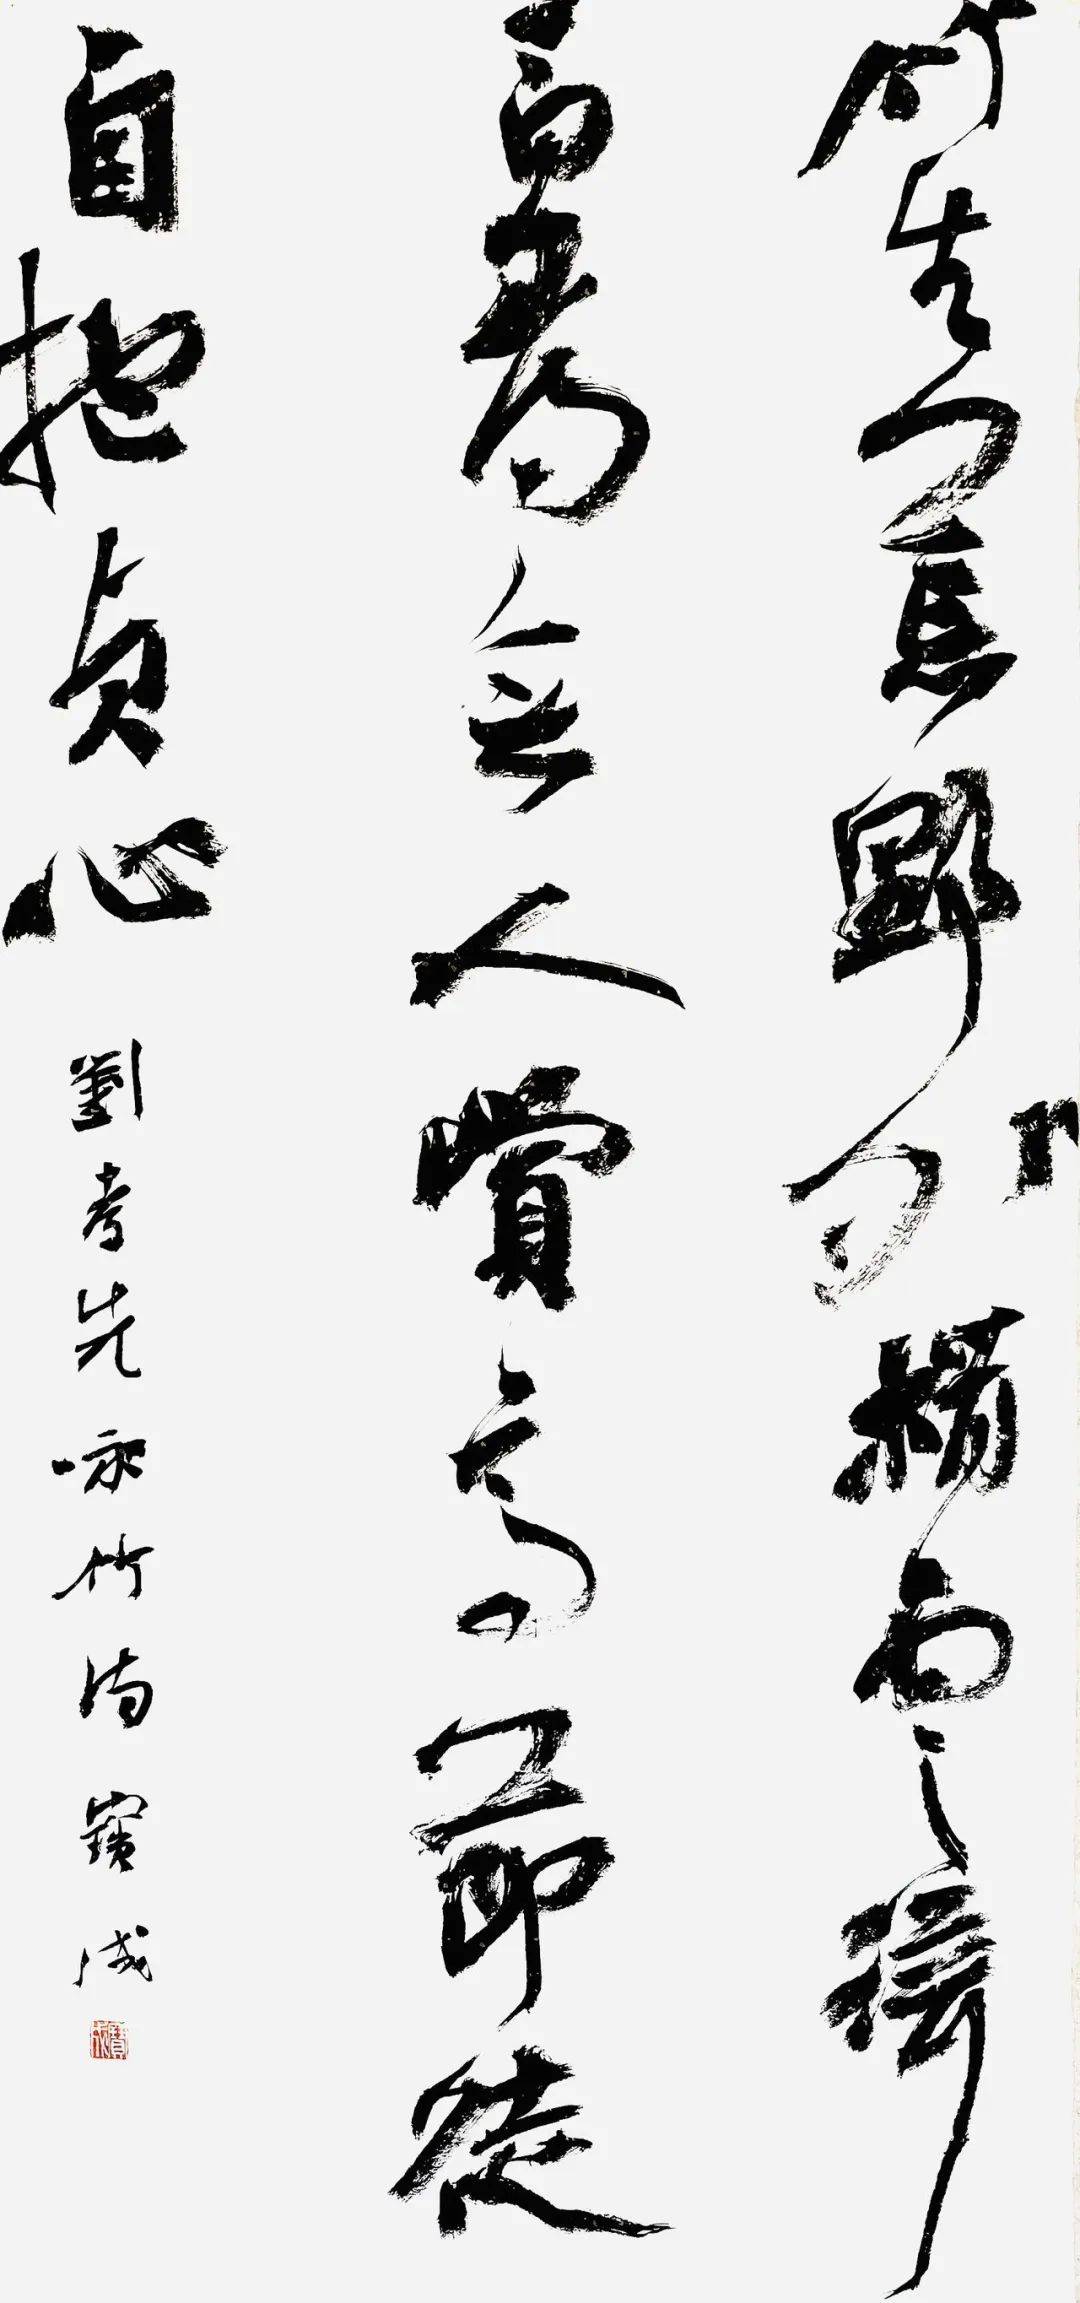 竹生荒野外梢雲聳
百尋無人賞高節徒
自抱貞心
劉孝先咏竹詩